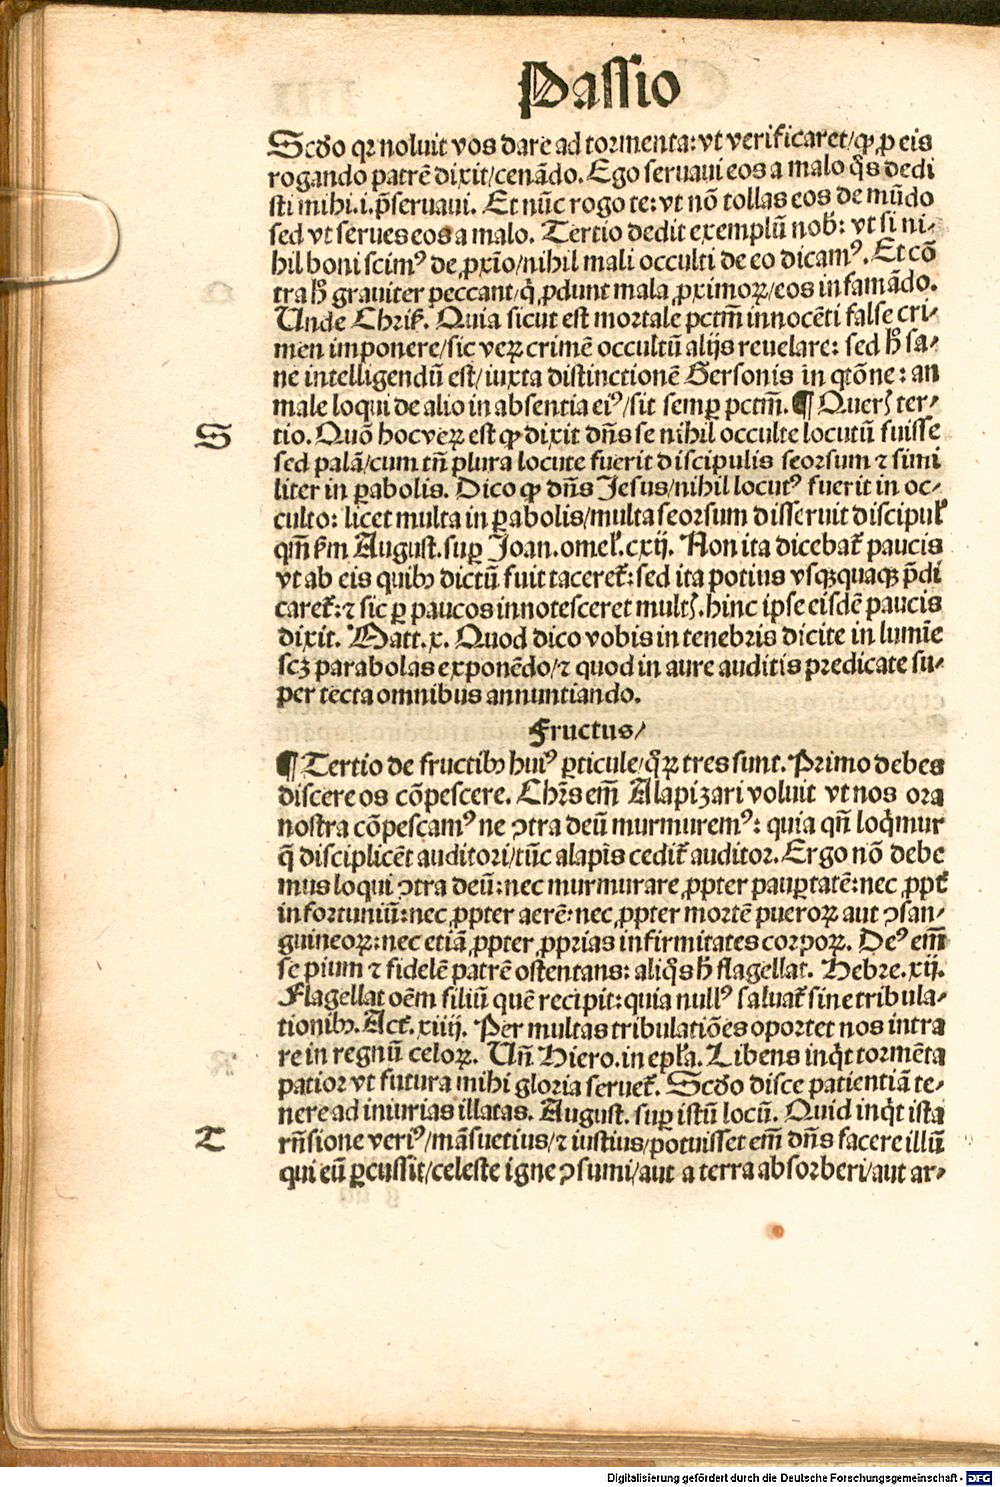 Passio
Scďo qꝛ noluit vos dare ad tormenta: vt verificaret/ꝙ ꝓ eis
rogando patrē dixit/cenādo. Ego seruaui eos a malo q̊s dedi
sti mihi .i. p̄seruaui. Et nūc rogo te: vt nō tollas eos de mūdo
sed vt serues eos a malo. Tertio dedit exemplū nob̄: vt si ni⸗
hil boni scimꝰ de ꝓxīo/nihil mali occulti de eo dicamꝰ. Et cō
tra h̄ grauiter peccant/q̇ ꝓdunt mala ꝓximoꝝ/eos infamādo.
Unde Chriſ. Quia sicut est mortale pctm̄ innocēti false cri⸗
men imponere/sic veꝝ crimē occultū alijs reuelare: sed h̄ sa⸗
ne intelligendū est/iuxta distinctionē Gersonis in q̄tōne: an
male loqui de alio in absentia eiꝰ/sit semꝑ pctm̄. ¶ Querꝭ ter⸗
S
tio. Quō hoc veꝝ est ꝙ dixit dn̄s se nihil occulte locutū fuisse
sed palā/cum tn̄ plura locute fuerit discipulis seorsum ⁊ simi
liter in ꝑabolis. Dico ꝙ dn̄s Jesus/nihil locutꝰ fuerit in oc⸗
culto: licet multa in ꝑabolis/multa seorsum disseruit discipul̓
qm̄ ẜm August. suꝑ Joan. omel̓. cxij. Non ita dicebat̉ paucis
vt ab eis quibꝫ dictū fuit taceret̉: sed ita potius vsqꝫquaqꝫ p̄di
caret̉: ⁊ sic ꝑ paucos innotesceret multꝭ. hinc ipse eisdē paucis
dixit. Matt. x. Quod dico vobis in tenebris dicite in lumīe
scꝫ parabolas exponēdo/⁊ quod in aure auditis predicate su⸗
per tecta omnibus annuntiando.
Fructus/
¶ Tertio de fructibꝫ huiꝰ ꝑticule/q̊ꝝ tres sunt. Primo debes
discere os cōpescere. Chr̄s em̄ Alapizari voluit vt nos ora
nostra cōpescamꝰ ne ꝯtra deū murmuremꝰ: quia qn̄ loq̇mur
q̄ disciplicēt auditori/tūc alapis cedit̉ auditor. Ergo nō debe
mus loqui ꝯtra deū: nec murmurare ꝓpter pauꝑtatē: nec ꝓpt̉
infortuniū: nec ꝓpter aerē: nec ꝓpter mortē pueroꝝ aut ꝯsan⸗
guineoꝝ: nec etiā ꝓpter ꝓprias infirmitates corpoꝝ. Deꝰ em̄
se pium ⁊ fidelē patrē ostentans: aliq̊s h̄ flagellat. Hebre. xij.
Flagellat oēm filiū quē recipit: quia nullꝰ saluat̉ sine tribula⸗
tionibꝫ. Act̉. xiiij. Per multas tribulatiōes oportet nos intra
re in regnū celoꝝ. Un̄ Hiero. in epl̓a. Libens inq̇t tormēta
patior vt futura mihi gloria seruet̉. Scďo disce patientiā te⸗
nere ad iniurias illatas. August. suꝑ istū locū. Quid inq̇t ista
T
rn̄sione veriꝰ/māsuetius/⁊ iustius/potuisset em̄ dn̄s facere illū
qui eū ꝑcussit/celeste igne ꝯsumi/aut a terra absorberi/aut ar⸗
Digitalisierung gefördert durch die Deutsche Forschungsgemeinschaft - DFG